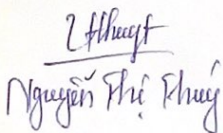 Nguyễn Thị Thuý